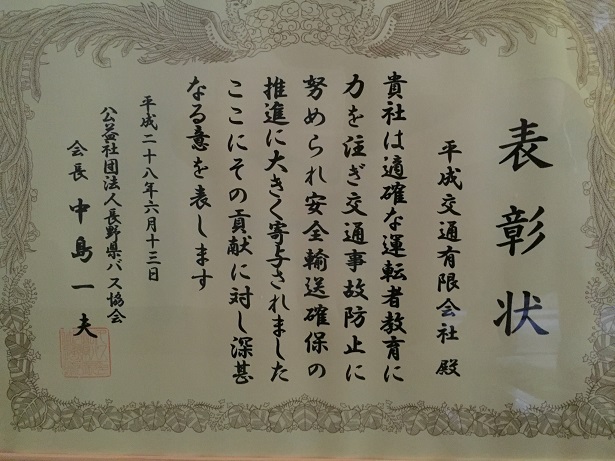 表彰状
平成交通有限会社 殿
貴社は適確な運転者教育に
力を注ぎ交通事故防止に
努められ安全輸送確保の
推進に大きく寄与されました
ここにその貢献に対し深甚
なる意を表します
平成二十八年六月十三日
公益社団法人長野県バス協会
会長 中島一夫